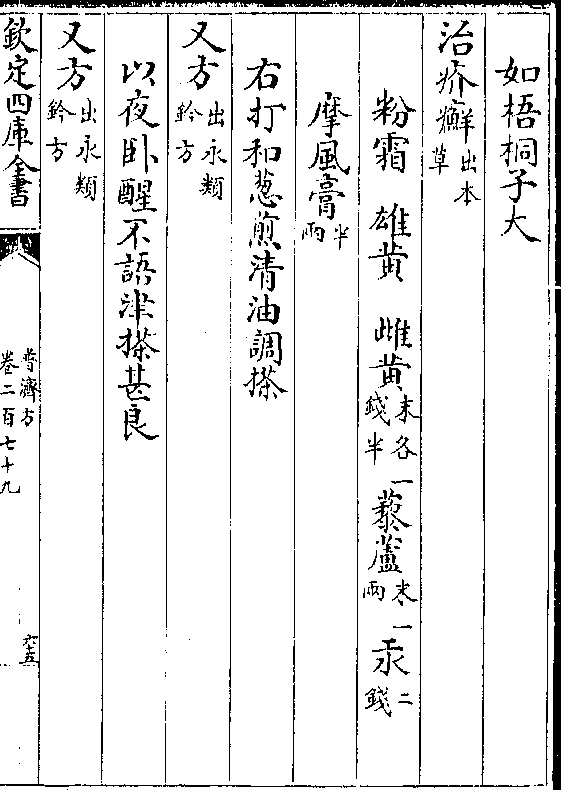 如梧桐子大
治疥癬出本草
粉霜 雄黄 雌黄末各一錢半 藜蘆末一兩 汞二錢
摩風膏半兩
右打和葱煎清油調搽
又方出永類鈐方
以夜卧醒不語津搽甚良
又方出永類鈐方
欽定四庫全書
普濟方
卷二百七十九
六十五